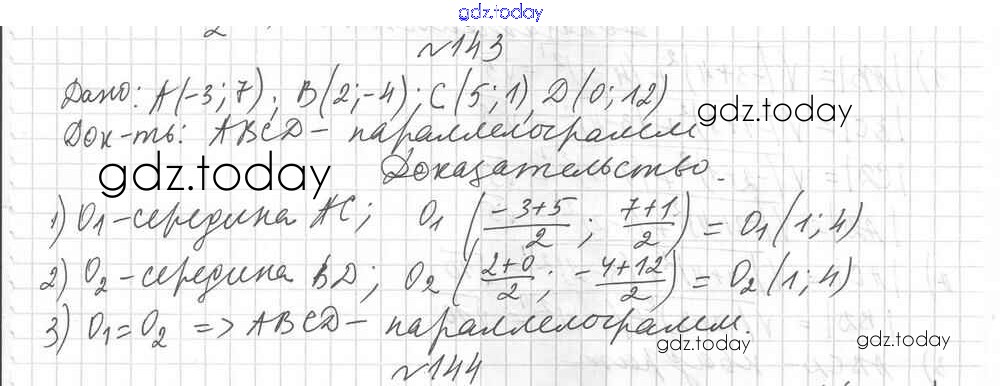 gdz.today
№143
Дано: A(-3; 7); B(2; -4); C(5; 1), D(0; 12)
gdz.today
Док-ть: ABCD - параллелограмм
gdz.today
Доказательство.
1) O₁ - середина AC; O₁ (-3+5/2 ; 7+1/2) = O₁(1; 4)
2) O₂ - середина BD; O₂ (2+0/2 ; -4+12/2) = O₂(1; 4)
3) O₁ = O₂ => ABCD - параллелограмм.
gdz.today
gdz.today
№144